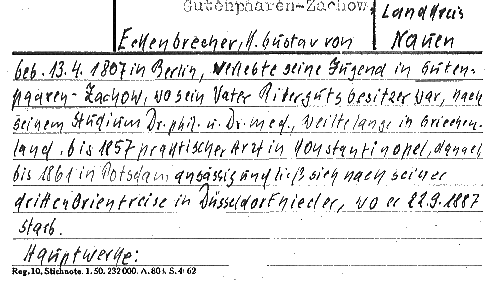 Gutenpaaren-Zachow
Landkreis
Nauen
Eckenbrecher, H. Gustav von
geb. 13.4. 1807 in Berlin, verlebte seine Jugend in Guten-
paaren-Zachow, wo sein Vater Rittergutsbesitzer war, nach
seinem Studium Dr. phil. u. Dr. med., weilte lange in Griechen-
land. bis 1857 praktischer Arzt in Konstantinopel, danach
bis 1861 in Potsdam ansässig und ließ sich nach seiner
dritten Orientreise in Düsseldorf nieder, wo er 22.9.1887
starb.
Hauptwerke:
Reg. 10, Stichnote. 1. 50. 232 000. A. 80 S. 4 62